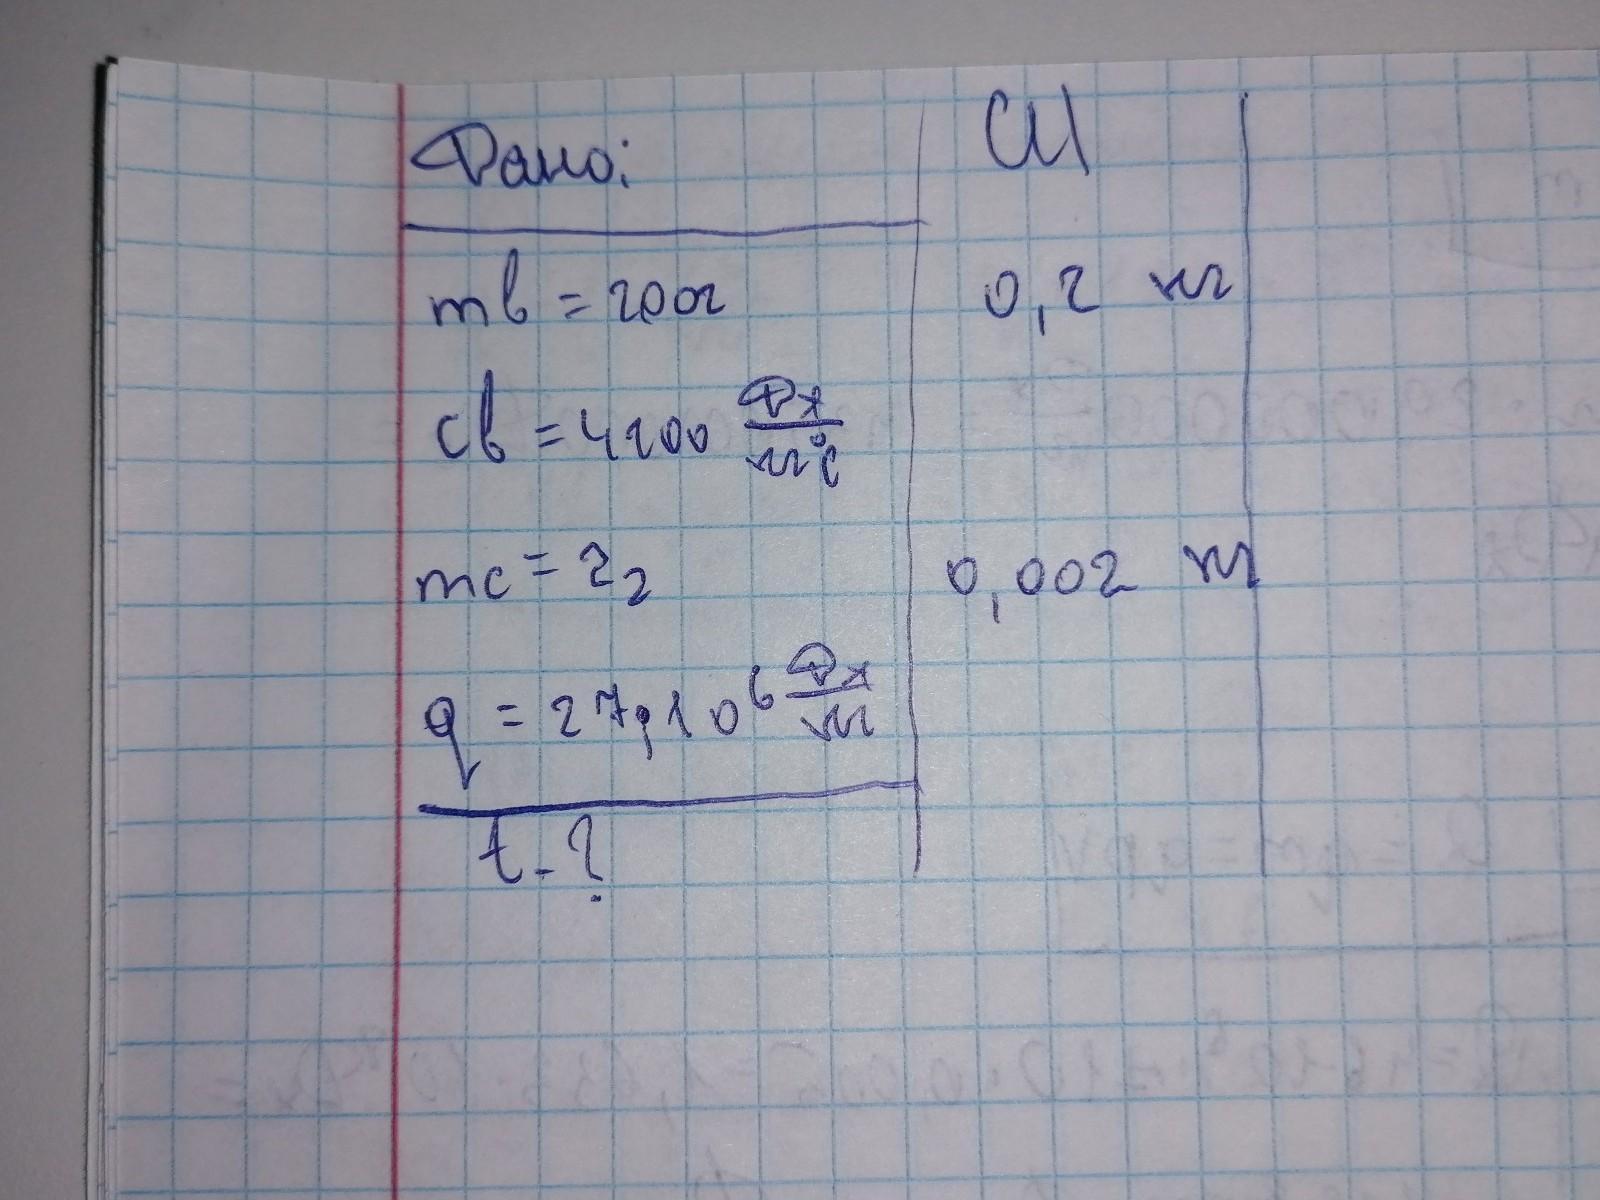 Дано: СИ
mв = 200г 0,2 кг
cв = 4200 Дж/кг°С
mс = 2г 0,002 кг
q = 27,10⁶ Дж/кг
t - ?